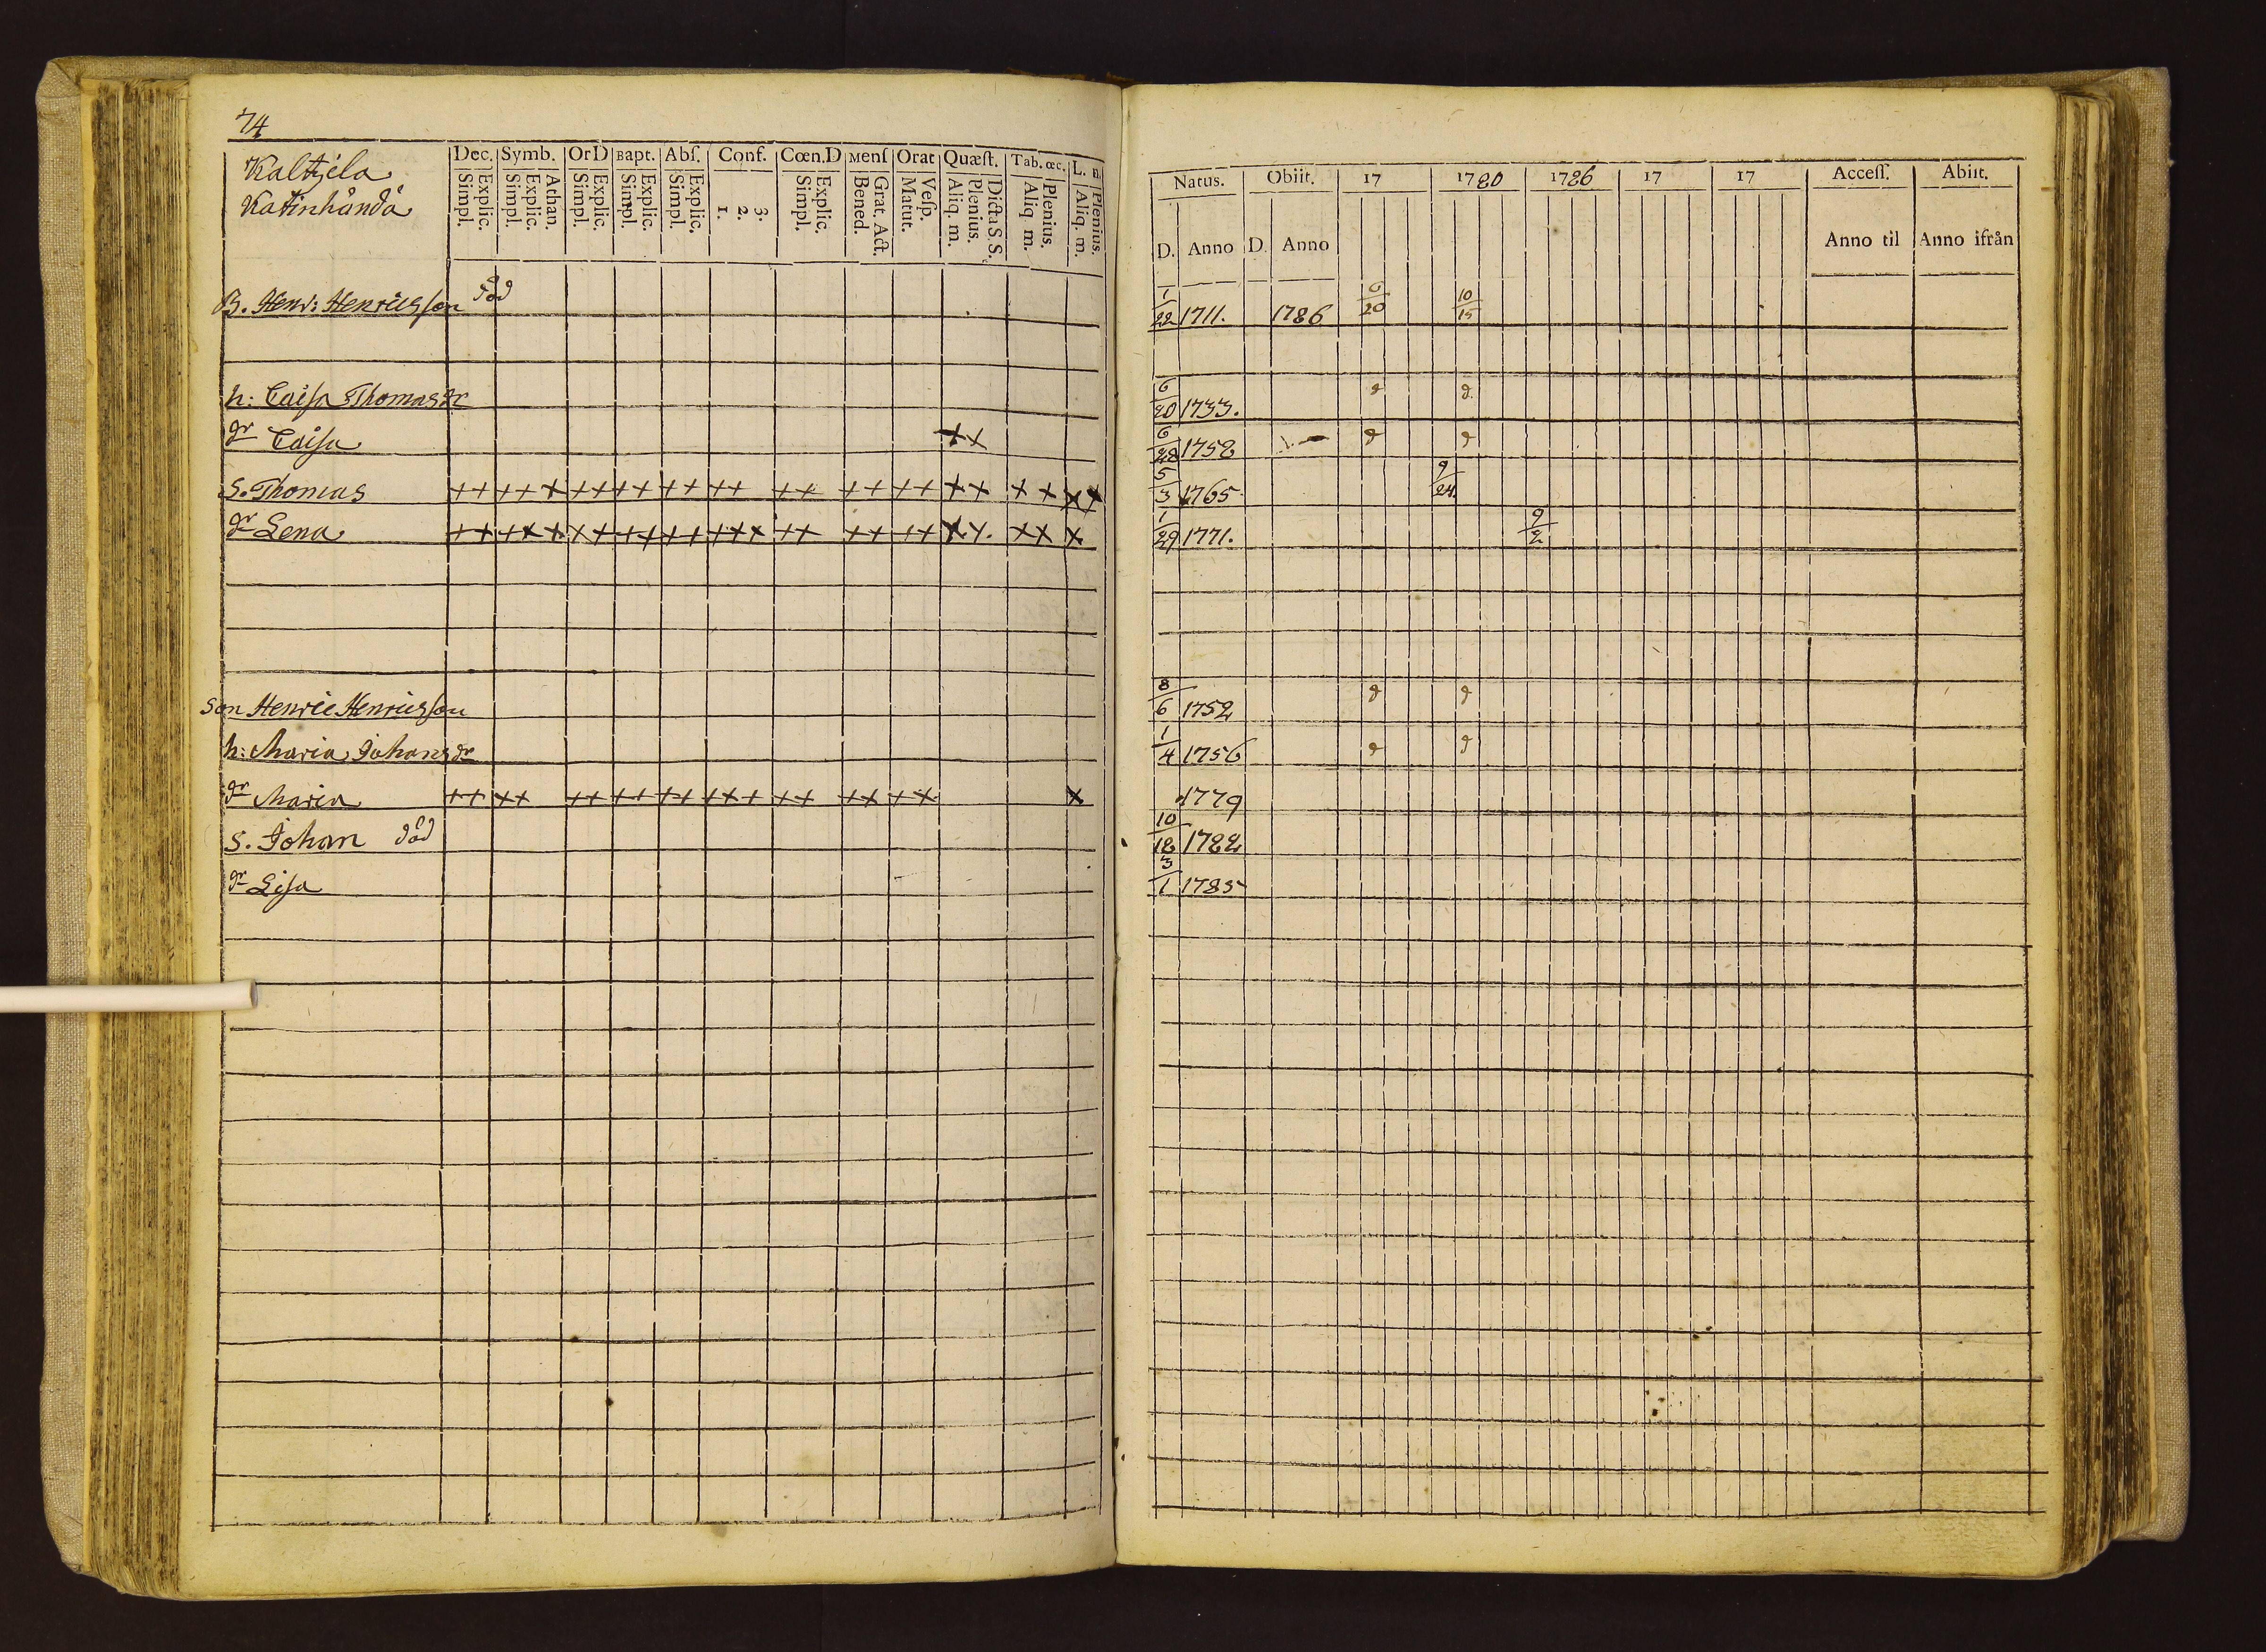 74
Kaltzila
Katinhändä
Dec. Symb. OrD Bapt. Abſ. Conf. Cœn.D Menſ Orat Quæſt. Tab. œc. L.
Explic. Simpl. Athan. Explic. Simpl. Explic. Simpl. Explic. Simpl. Explic. Simpl. 3. 2. 1. Explic. Simpl. Grat. Act. Bened. Veſp. Matut. Dicta S.S. Plenius. Aliq. m. Plenius. Aliq. m. Plenius. Aliq. m.
B. Henr: Henricsson död
h: Caisa Thomasdr
dr Caisa ++
S. Thomas ++ +++ ++ ++ ++ ++ ++ ++ ++ ++ ++ ++
dr Lena ++ +++ ++ ++ ++ +++ ++ ++ ++ ++ ++ +
Son Henric Henricsson
h: Maria Johansdr
dr Maria ++ ++ ++ ++ ++ +++ ++ ++ ++ +
S. Johan död
dr Lisa
Natus. Obiit. 17 1780 1786 17 17 Acceſſ. Abiit.
D. Anno D. Anno Anno til Anno ifrån
1/22 1711. 1786 6/20 10/15
6/20 1733. d d
6/28 1758 d d
5/3 1765 9/24
1/29 1771. 9/2
8/6 1752 d d
1/4 1756 d d
1779
10/18 1782
3/1 1785